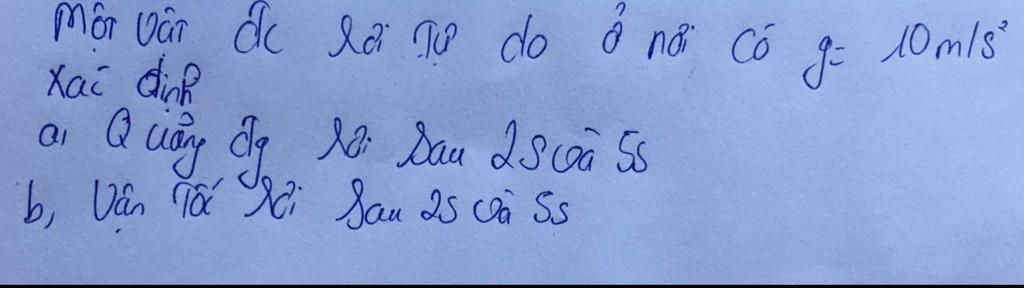 Một vật đc rơi tự do ở nơi có g= 10m/s²
Xác định
a, Quảng đg rơi sau 2s và 5s
b, Vận Tốc rơi sau 2s và 5s